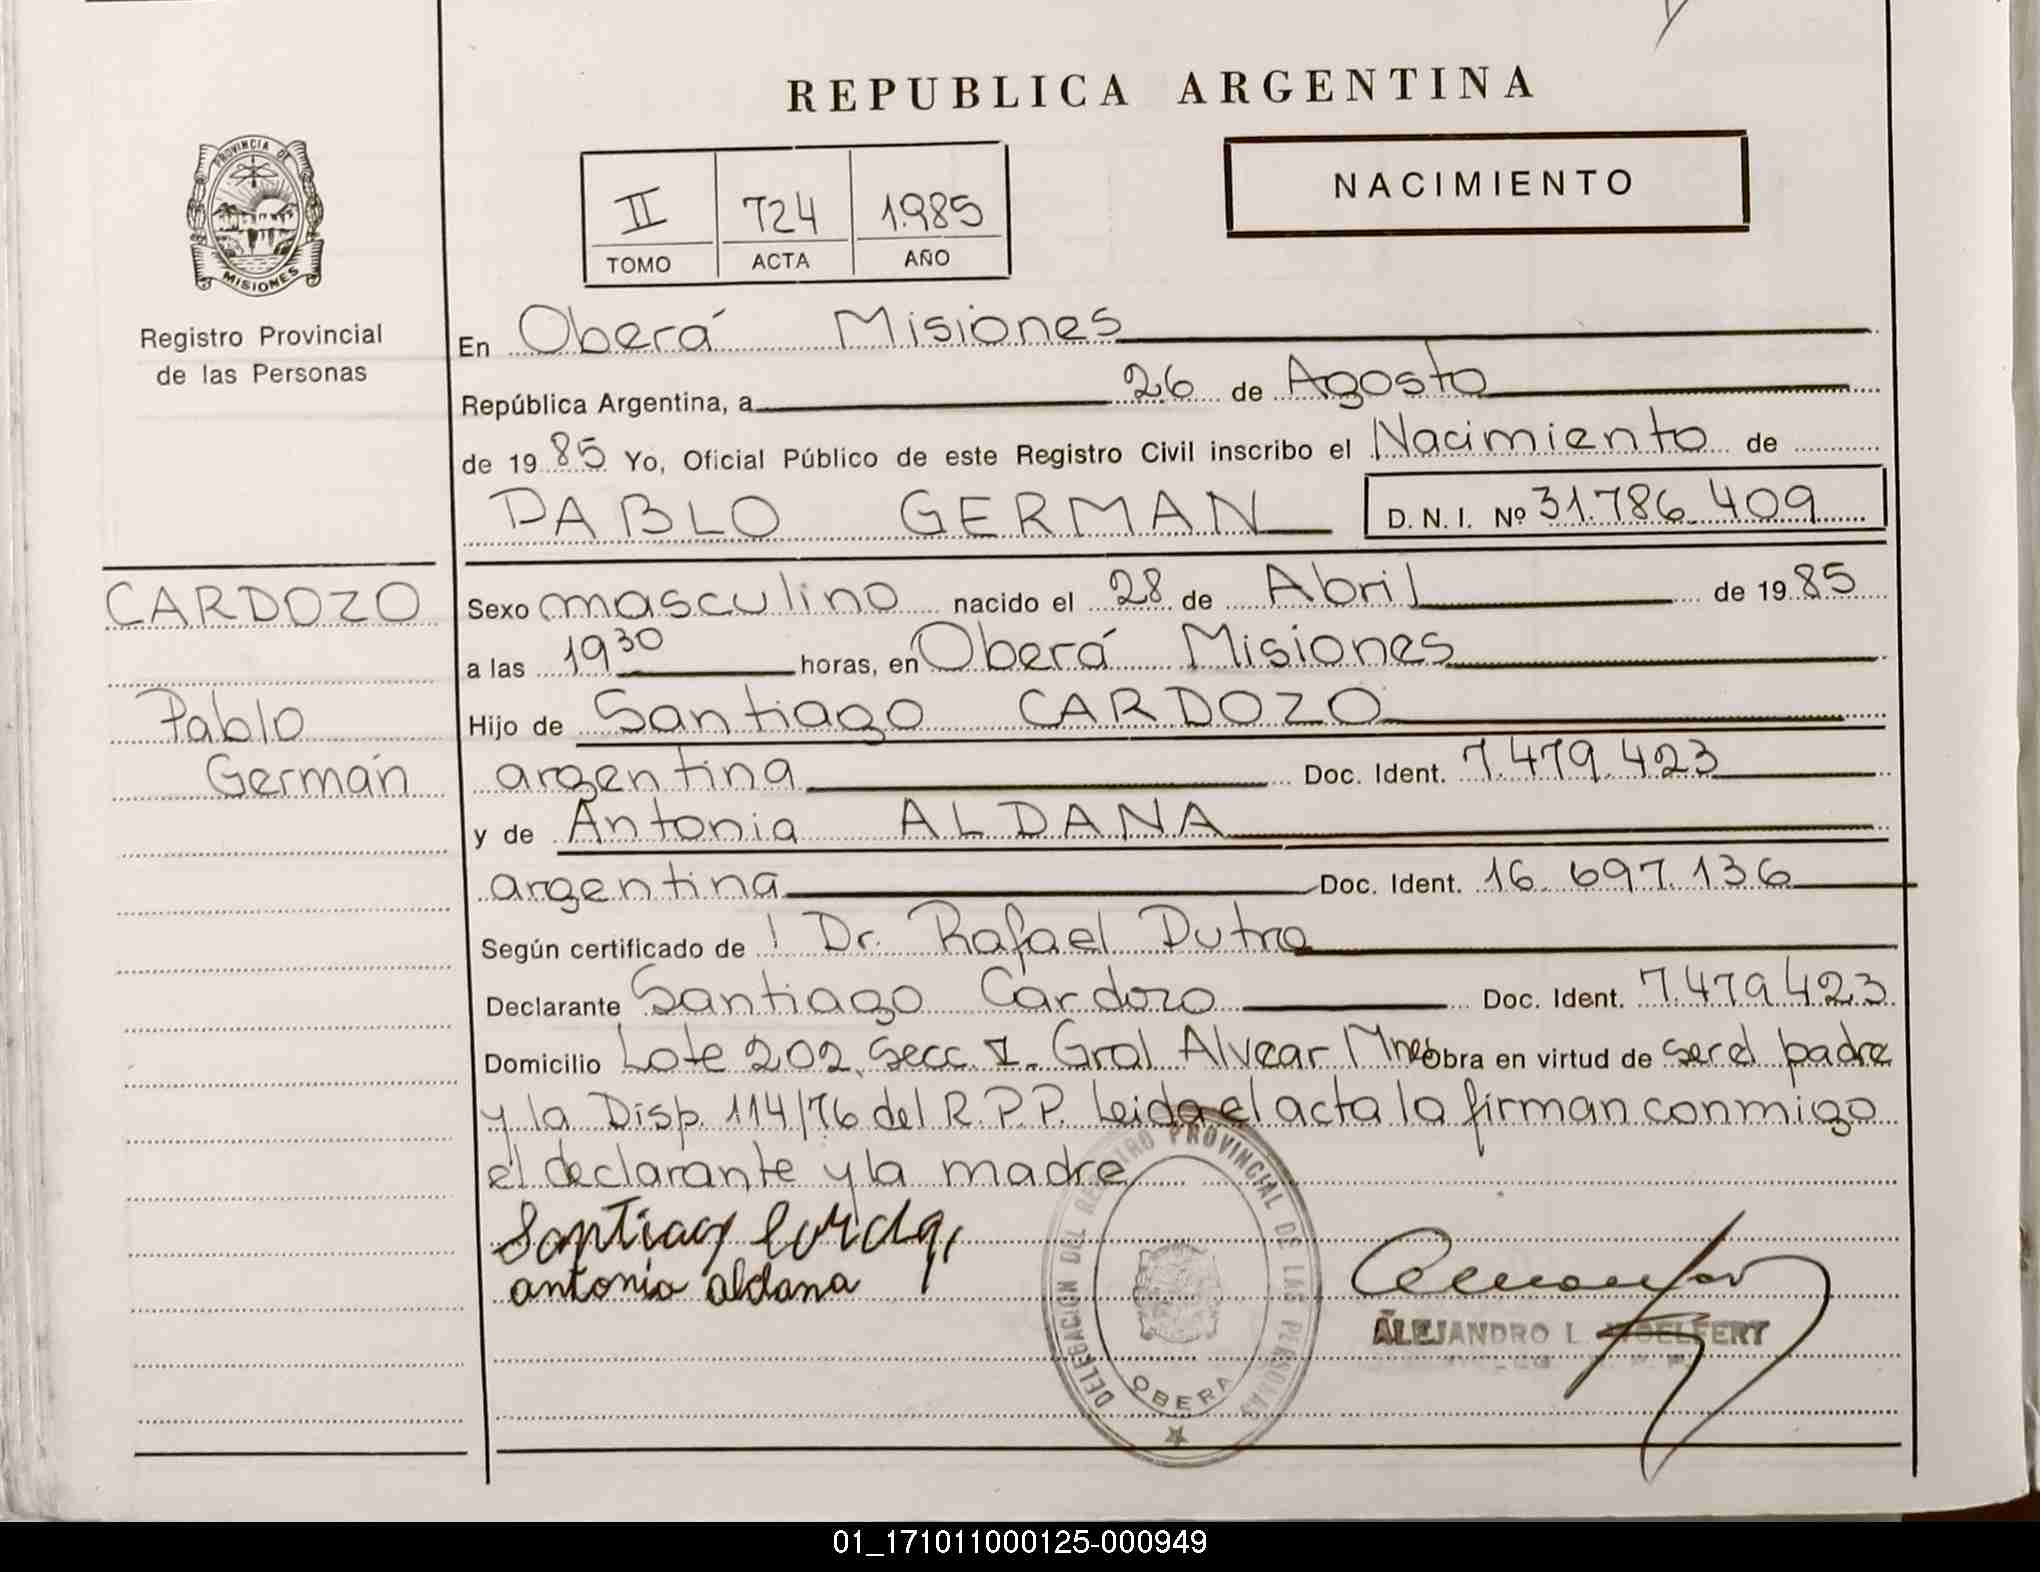 REPUBLICA ARGENTINA
PROVINCIA DE
MISIONES
Registro Provincial
de las Personas
NACIMIENTO
II 724 1.985
TOMO ACTA AÑO
En Oberá Misiones
República Argentina, a 26 de Agosto
de 19 85 Yo, Oficial Público de este Registro Civil inscribo el Nacimiento de
PABLO GERMAN D. N. I. Nº 31.786.409
CARDOZO
Pablo
Germán
Sexo masculino nacido el 28 de Abril de 19 85
a las 19 30 horas, en Oberá Misiones
Hijo de Santiago CARDOZO
argentina Doc. Ident. 7.479.423
y de Antonia ALDANA
argentina Doc. Ident. 16.697.136
Según certificado de Dr. Rafael Dutra
Declarante Santiago Cardozo Doc. Ident. 7.479.423
Domicilio Lote 202 Secc. I. Gral Alvear Mnes Obra en virtud de ser el padre
y la Disp. 114/76 del R.P.P. Leida el acta la firman conmigo
el declarante y la madre
antonia aldana
DELEGACION DEL REGISTRO PROVINCIAL DE LAS PERSONAS
OBERA
ALEJANDRO L. WOELFERT
01_171011000125-000949